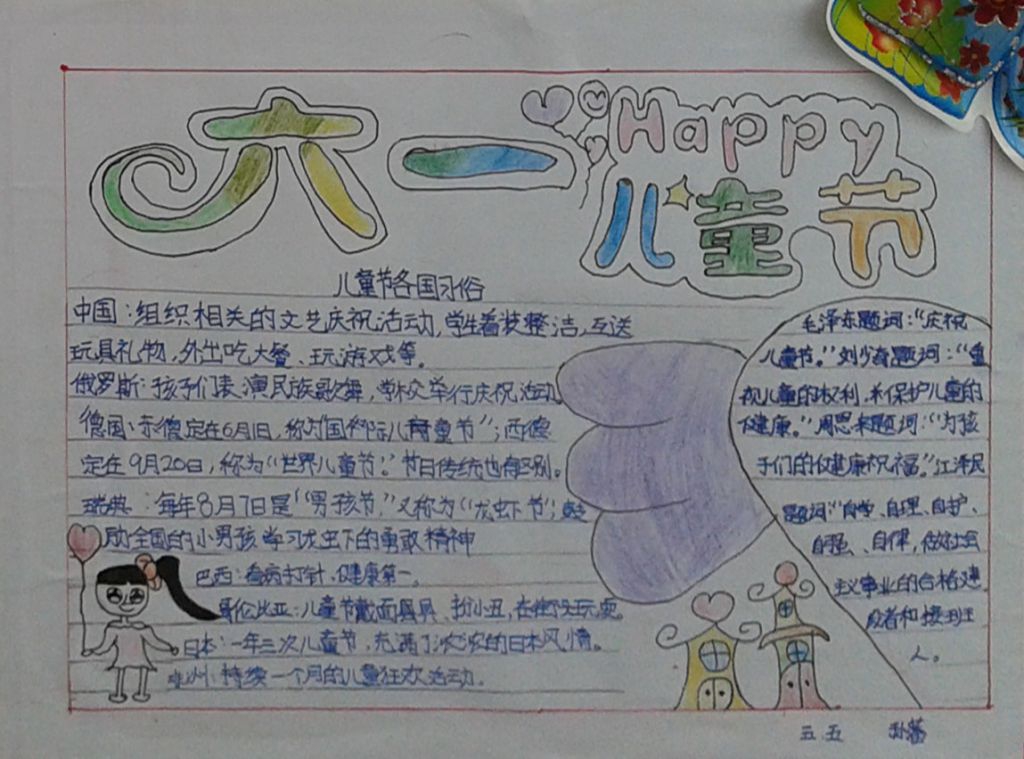 六一
Happy
儿童节
儿童节各国习俗
中国:组织相关的文艺庆祝活动,学生着装整洁,互送
玩具礼物,外出吃大餐、玩游戏等。
俄罗斯:孩子们表演民族歌舞,学校举行庆祝活动
德国:东德定在6月1日,称为"国际儿童节";西德
定在9月20日,称为"世界儿童节。"节日传统也有区别。
瑞典:每年8月7日是"男孩节"又称为"龙虾节";鼓
励全国的小男孩学习龙虾的勇敢精神
巴西:看病打针,健康第一。
哥伦比亚:儿童节戴面具、扮小丑,在街头玩耍
日本:一年三次儿童节,充满了浓浓的日本风情。
非洲:持续一个月的儿童狂欢活动。
毛泽东题词:"庆祝
儿童节。"刘少奇题词:"重
视儿童的权利,和保护儿童的
健康。"周恩来题词:"为孩
子们的健康祝福。"江泽民
题词"自学、自理、自护、
自强、自律,做社会
主义事业的合格建
设者和接班
人。
五.五